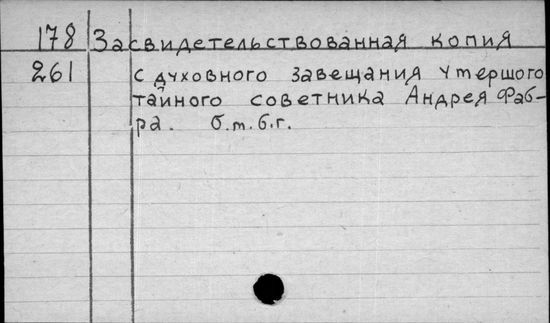 178 Засвидетельствованная копия
261 с духовного завещания умершого
тайного советника Андрея Фаб-
ра. б.т.б.г.